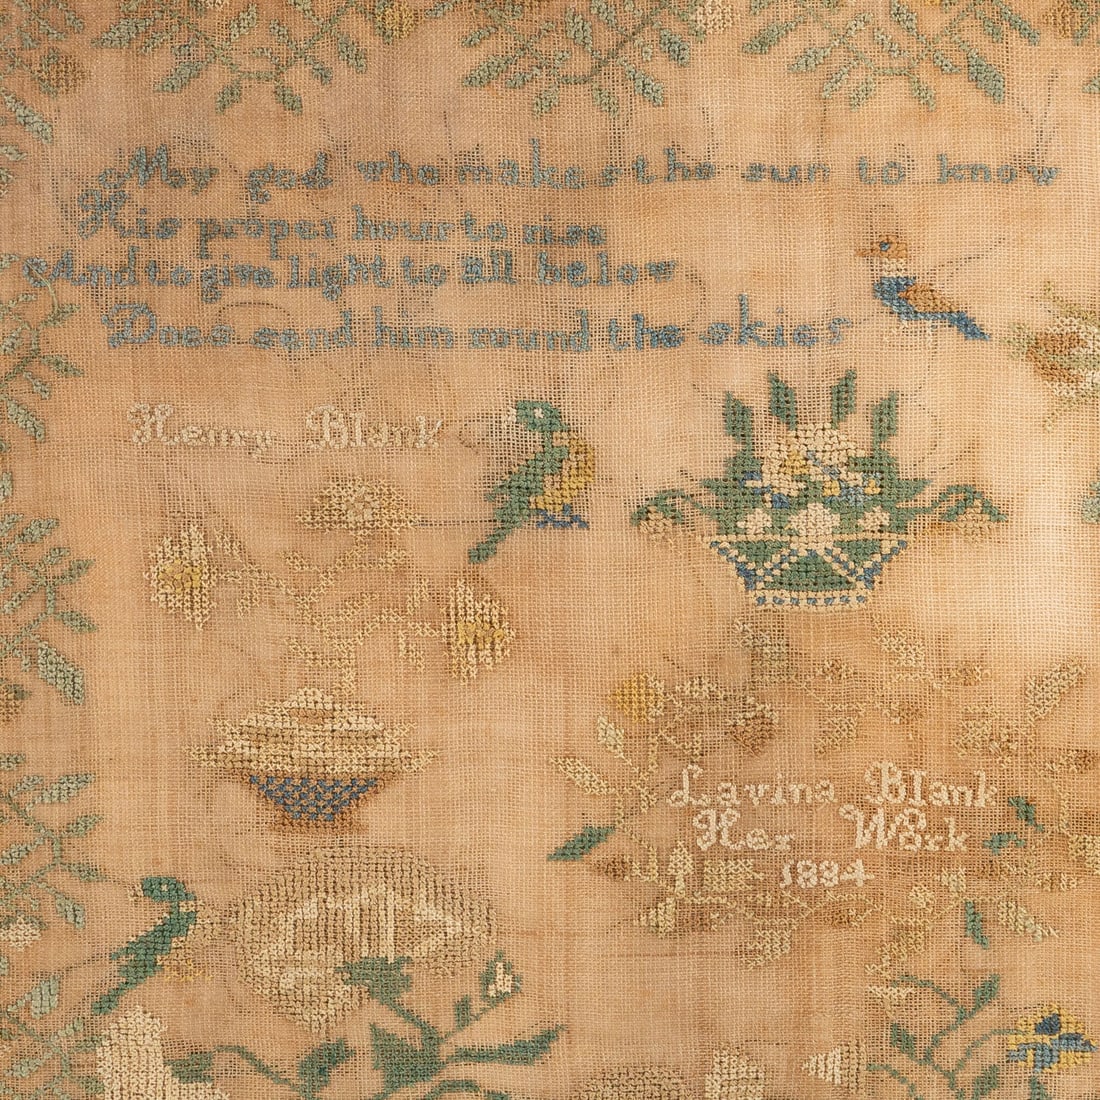 My god who makes the sun to know
His proper hour to rise
And to give light to all below
Does send him round the skies
Henry Blank
Lavina Blank
Her Work
1834